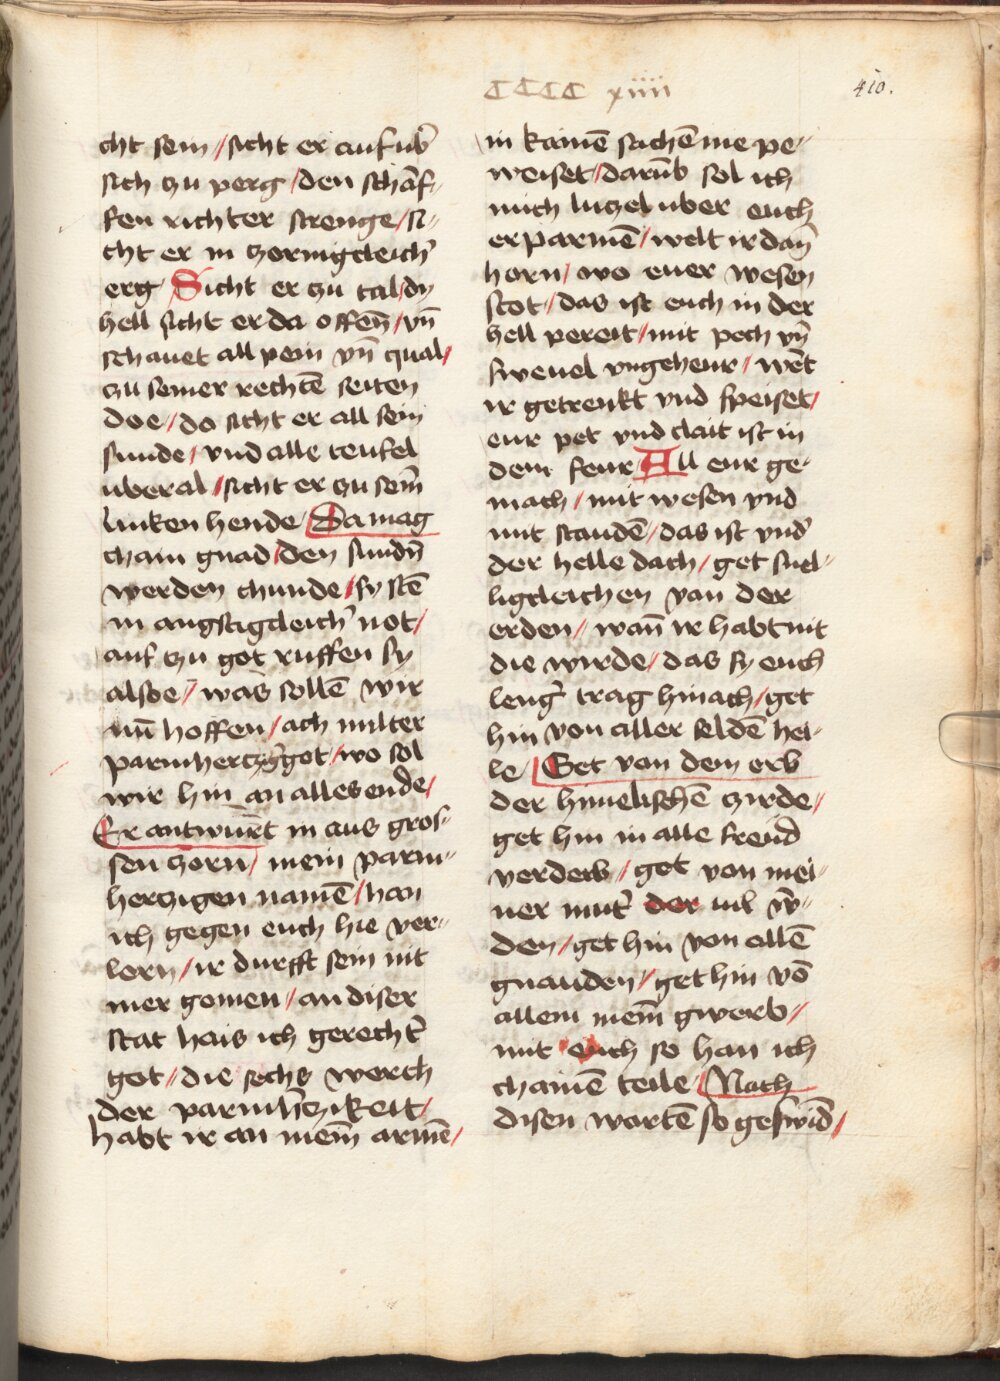 CCCC xiiii
410.
cht sein / sicht er auf vb̄
sich zu perg / den schāf-
fen richter strenge / si-
cht er in zornigcleich̄
erg Sicht er zu tal / dy
hell sicht er da offen̄ / vn̄
schauet all pein vn̄ qual /
zu seiner rechtē seiten
doe / do sicht er all sein
sunde / vnd alle teufel
uberal / sicht er zu sem̄
linken hende Da mag
chain gnad / den sundn̄
werden chunde / sy stē
in angstigcleich̄ not /
auf zu got ruffen sy
alsoe / was sollē wir
nū hoffen / ach milter
parmhertzḡ got / wo sol
wir hin an alles ende /
Er antwurt̄ in aus gros-
sen zorn / mein parm-
hertzigen namē / han
ich gegen euch hie ver-
lorn / ir durfft sein nit
mer gomen / an diser
stat hais ich gerecht̄
got / die sechs werch
der parmh̄tzikeit /
habt ir an mem̄ armē /
in kainē sachē nie pe-
weiset / darūb sol ich
mich lutzel uber euch
erparmē / welt ir dan̄
horn / wo euer wesen
stet / das ist euch in der
hell pereit / mit pech vn̄
swevel vngeheur / wēt
ir getrenkt vnd speiset /
eur pet vnd clait ist in
dem feur All eur ge-
mach / mit wesen vnd
mit standē / das ist vnd̄
der helle dach / get snel-
ligcleichen von der
erden / wan̄ ir habt nit
die wirde / das sy euch
lenḡ trag hinach / get
hin von aller seldē hei-
le Get von dem erb
der himelischē zirde /
get hin in alle freud̄
verderb / get von mei-
ner mut̄ der nil w̄-
den / get hin von allē
gnauden / get hin vō
allem mem̄ gwerb /
mit euch so han ich
chainē teile Nach
disen wortē so geswid̄ /